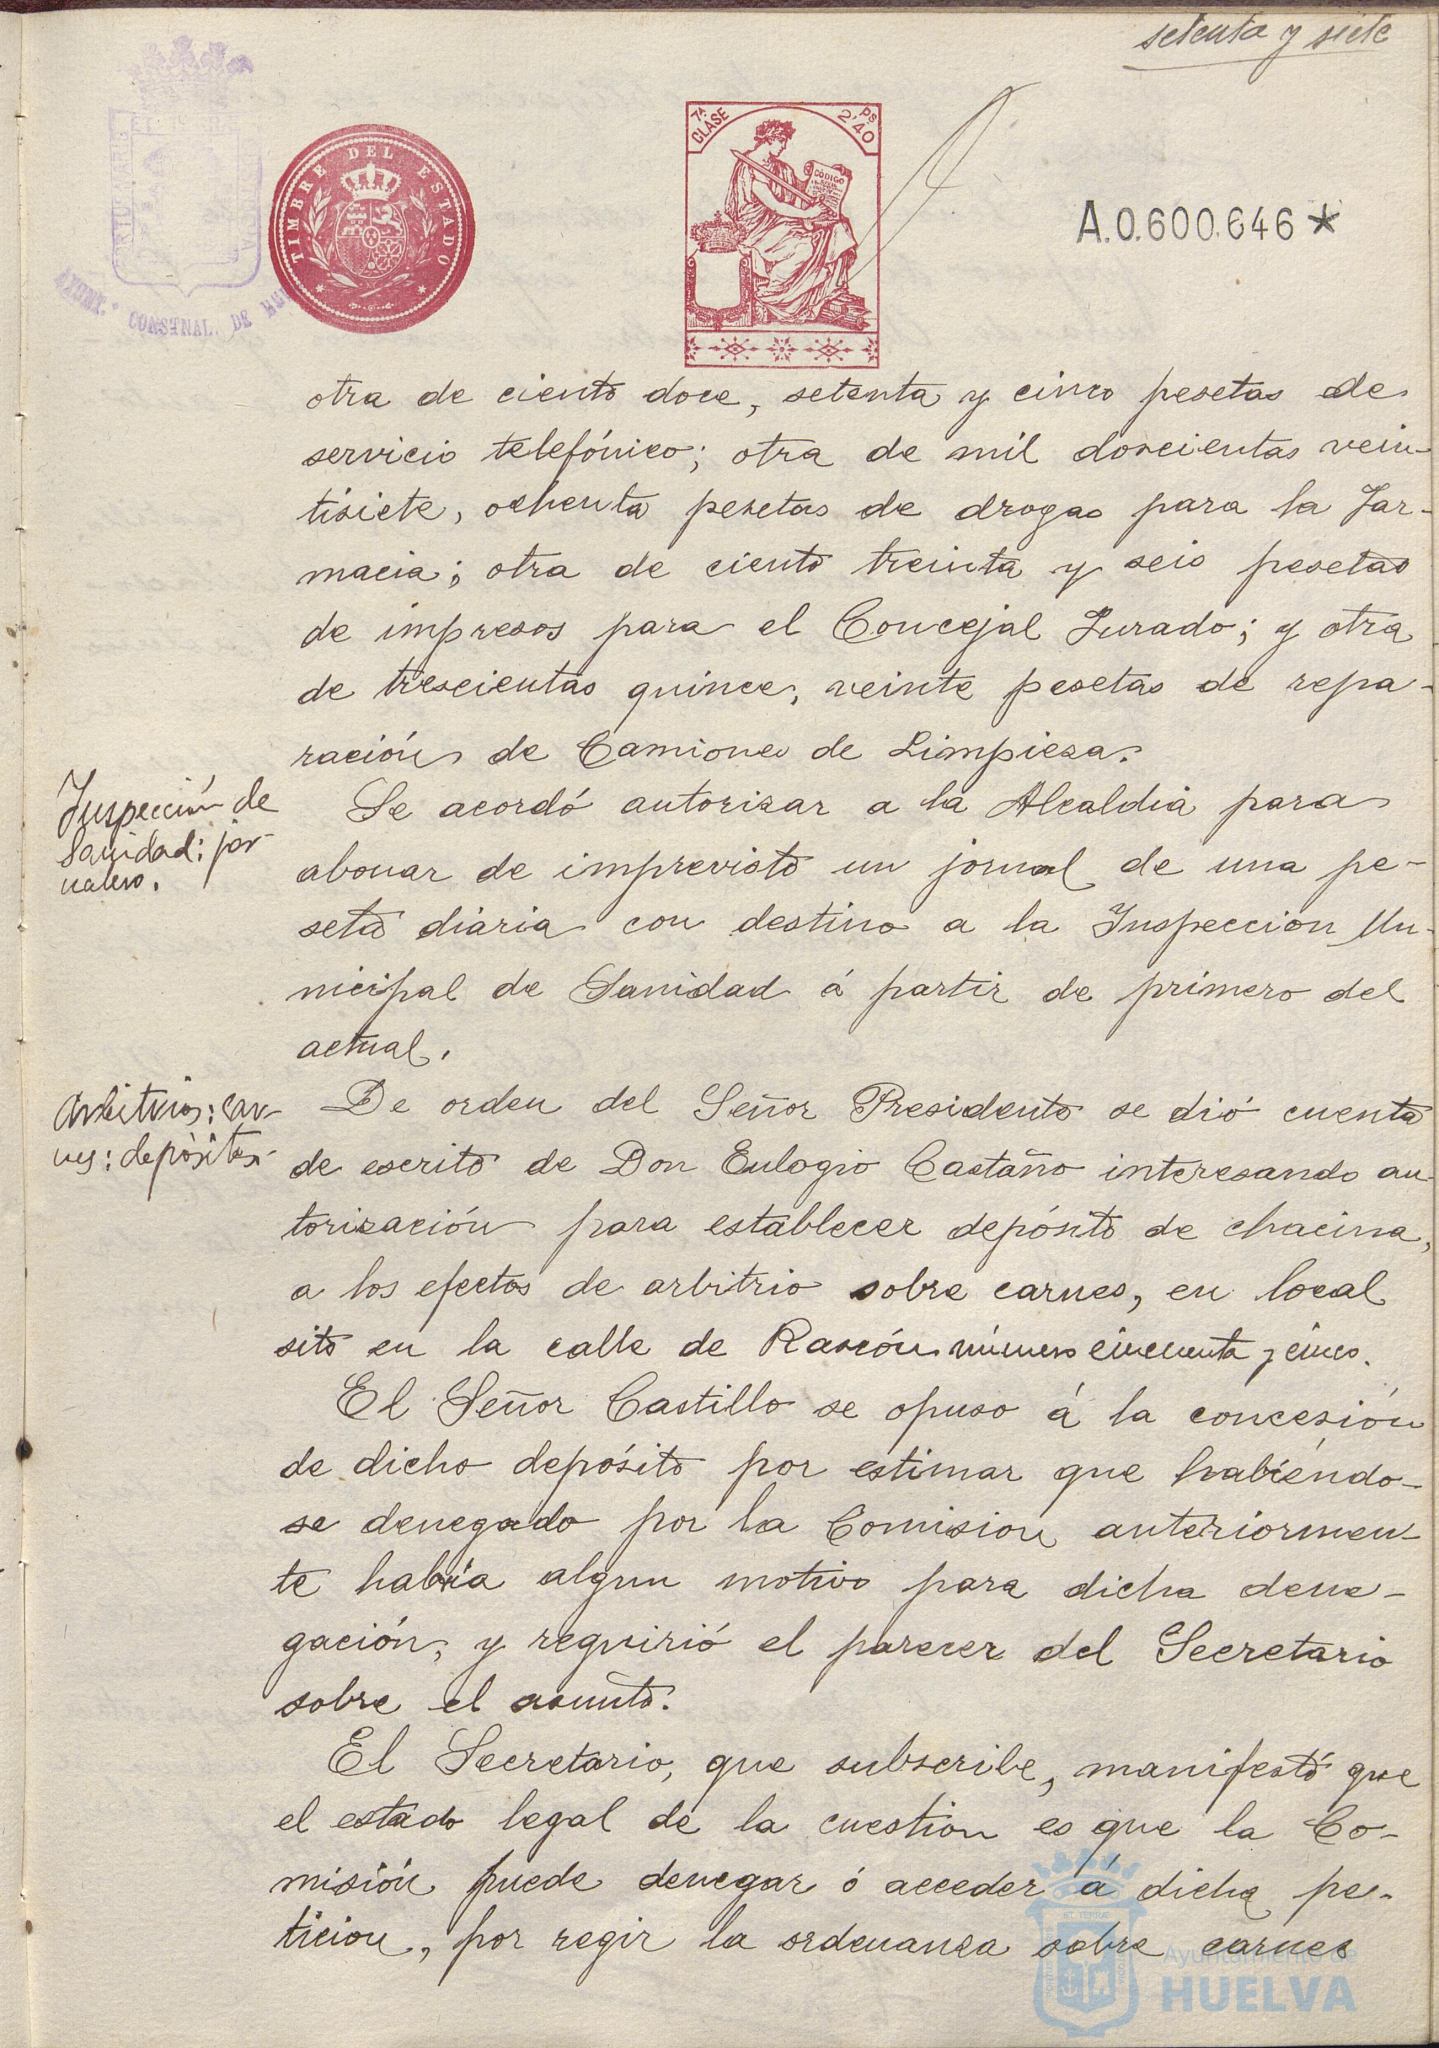 setenta y siete
TIMBRE DEL ESTADO
7ª CLASE
2'40 Ps
CÓDIGO
A.0.600.646*
AYUNT.º CONSTNAL. DE
otra de ciento doce, setenta y cinco pesetas de
servicio telefónico; otra de mil doscientas vein-
tisiete, ochenta pesetas de drogas para la Far-
macia; otra de ciento treinta y seis pesetas
de impresos para el Concejal Jurado; y otra
de trescientas quince, veinte pesetas de repa-
ración de Camiones de Limpieza.
Inspección de
Sanidad: jor-
nales.
Se acordó autorizar a la Alcaldía para
abonar de imprevisto un jornal de una pe-
seta diaria con destino a la Inspeccion Mu-
nicipal de Sanidad á partir de primero del
actual.
Arbitrios: car-
nes: depósitos.
De orden del Señor Presidente se dió cuenta
de escrito de Don Eulogio Castaño interesando au-
torización para establecer depósito de chacina,
a los efectos de arbitrio sobre carnes, en local
sito en la calle de Rascón número cincuenta y cinco.
El Señor Castillo se opuso á la concesión
de dicho depósito por estimar que habiéndo-
se denegado por la Comision anteriormen-
te habría algun motivo para dicha dene-
gación, y requirió el parecer del Secretario
sobre el asunto.
El Secretario, que subscribe, manifestó que
el estado legal de la cuestion es que la Co-
misión puede denegar ó acceder á dicha pe-
ticion, por regir la ordenanza sobre carnes
Ayuntamiento de
HUELVA